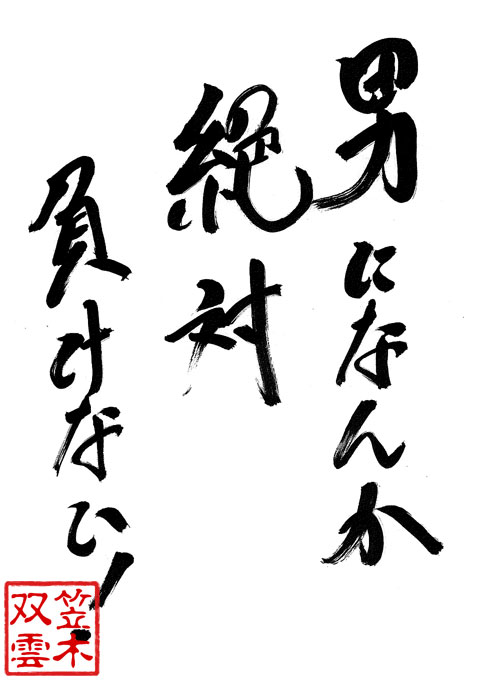 男になんか
絶対
負けない!
笠木
双雲